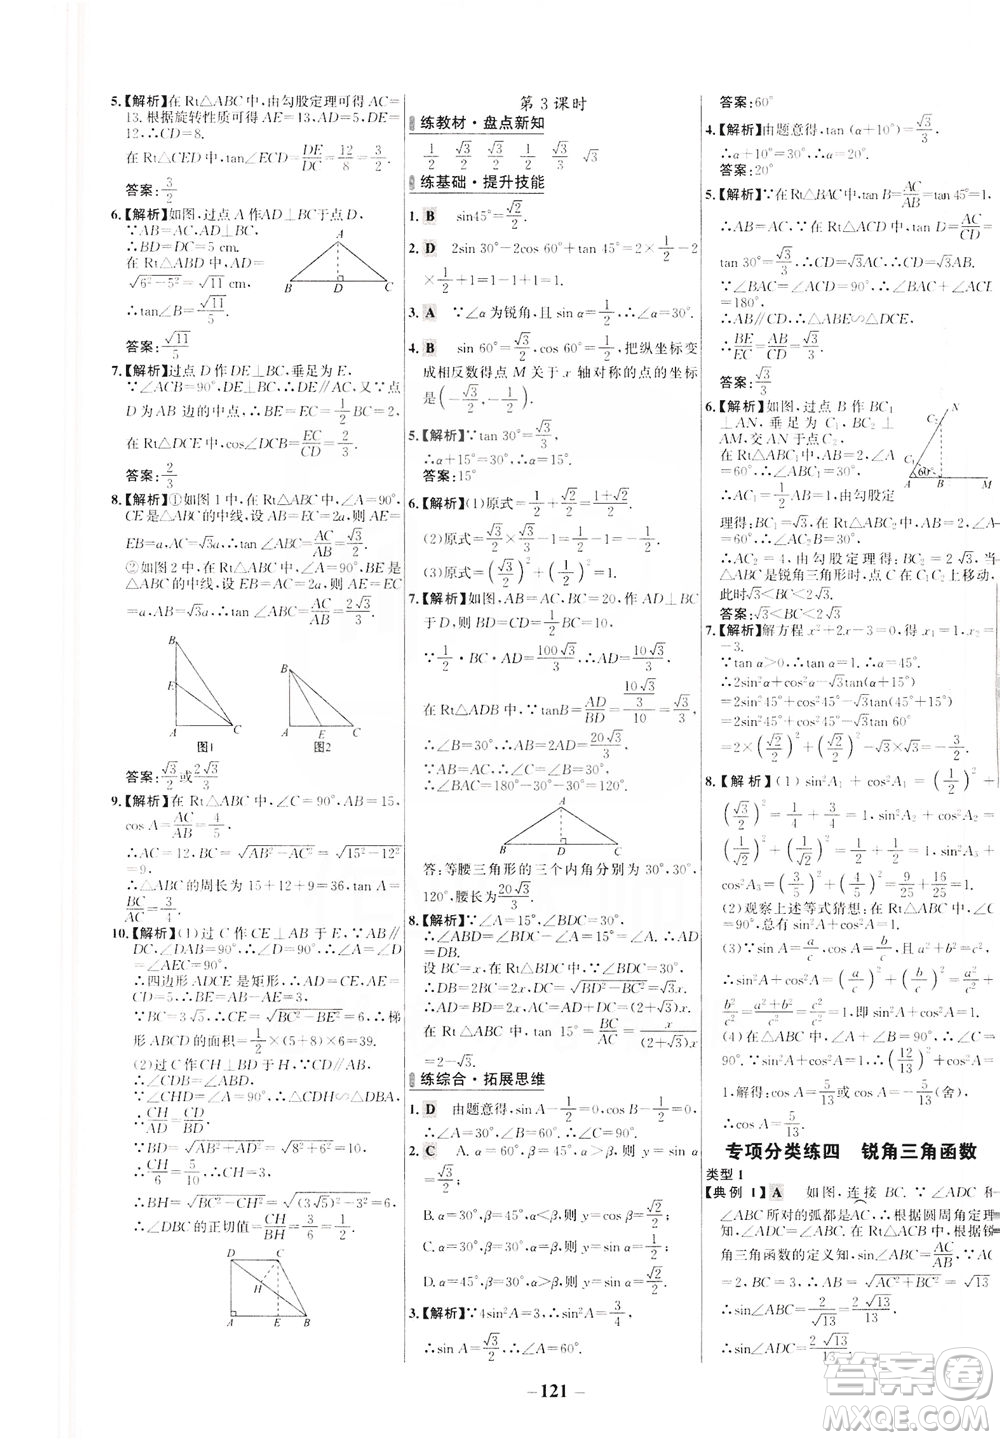 5.【解析】在 Rt△ABC中,由勾股定理可得 AC=
13.根据旋转性质可得 AE=13,AD=5,DE=
12,∴CD=8.
在 Rt△CED 中,tan∠ECD=DE/DC=12/8=3/2.
答案:3/2
6.【解析】如图,过点 A 作AD⊥BC于点 D,
∵AB=AC,AD⊥BC,
∴BD=DC=5 cm.
在 Rt△ABD 中,
AD=√(6²-5²)=√11 cm,
∴tan∠B=√11/5.
答案:√11/5
7.【解析】过点 D 作 DE⊥BC,垂足为 E,
∵∠ACB=90°,DE⊥BC,∴DE∥AC,又∵点
D 为 AB 边的中点,∴BE=EC=1/2BC=2,
在 Rt△DCE 中,cos∠DCB=EC/CD=2/3.
答案:2/3
8.【解析】①如图 1 中,在 Rt△ABC中,∠A=90°,
CE是△ABC的中线,设 AB=EC=2a,则 AE=EB
=a,AC=√3a,∴tan∠ABC=AC/AB=√3/2.
②如图 2 中,在 Rt△ABC中,∠A=90°,BE是
△ABC的中线,设 EB=AC=2a,则 AE=EC
=a,AB=√3a,∴tan∠ABC=AC/AB=2√3/3.
B
E
A
C
图1
B
A
E
C
图2
答案:√3/2或2√3/3
9.【解析】在 Rt△ABC 中,∠C=90°,AB=15,
cos A=AC/AB=4/5,
∴AC=12,BC=√(AB²-AC²)=√(15²-12²)
=9,
∴△ABC 的周长为 15+12+9=36,tan A=
BC/AC=3/4.
10.【解析】(1)过 C 作 CE⊥AB 于 E,∵AB∥
DC,∠DAB=90°,∴∠D=90°,∴∠A=∠D
=∠AEC=90°,
∴四边形 ADCE 是矩形,∴AD=CE,AE=
CD=5,∴BE=AB-AE=3.
∵BC=3√5,∴CE=√(BC²-BE²)=6,∴梯
形 ABCD 的面积=1/2×(5+8)×6=39.
(2)过 C 作 CH⊥BD 于 H,∵CD∥AB,
∴∠CDB=∠ABD.
∵∠CHD=∠A=90°,∴△CDH∽△DBA,
∴CH/AD=CD/BD,
∵BD=√(AB²+AD²)=√(8²+6²)=10,∴
CH/6=5/10,∴CH=3,
∴BH=√(BC²-CH²)=√((3√5)²-3²)=6,
∴∠DBC 的正切值=CH/BH=3/6=1/2.
D
C
H
A
E
B
第 3 课时
练教材·盘点新知
1/2 √3/2 √2/2 √2/2 √3/2 1/2 √3/3 1 √3
练基础·提升技能
1. B sin45°=√2/2.
2. D 2sin 30°-2cos 60°+tan 45°=2×1/2-2
×1/2+1=1-1+1=1.
3. A ∵∠α为锐角,且 sin α=1/2,∴∠α=30°.
4. B sin 60°=√3/2,cos 60°=1/2,把纵坐标变
成相反数得点 M 关于 x 轴对称的点的坐标
是(-√3/2,-1/2).
5.【解析】∵tan 30°=√3/3,
∴α+15°=30°,∴α=15°.
答案:15°
6.【解析】(1)原式=1/2+√2/2=(1+√2)/2.
(3)原式=(√3/2)²+(√2/2)²=5/4.
7.【解析】如图,△ABC中,AB=AC,BC=20,作
AD⊥BC于 D,则 BD=1/2BC=10,
∵1/2·BC·AD=100√3/3,∴AD=10√3/3.
在 Rt△ADB 中,∵tanB=AD/BD=(10√3/3)/10=√3/3,
∴∠B=30°,∴AB=2AD=20√3/3.
∵AB=AC,∴∠C=∠B=30°,
∠BAC=180°-30°-30°=120°.
A
B
D
C
答:等腰三角形的三个内角分别为 30°,30°,
120°,腰长为20√3/3.
8.【解析】∵∠A=15°,∠BDC=30°,
∴∠ABD=∠BDC-∠A=15°=∠A.∴AD=
DB.
设 BC=x,在 Rt△BDC 中,∵∠BDC=30°,
∴DB=2BC=2x,DC=√(BD²-BC²)=√3x,
∴AD=DB=2x,∴AC=AD+DC=(2+√3)x.
在 Rt△ABC 中,tan 15°=BC/AC=x/((2+√3)x)
=2-√3.
练综合·拓展思维
1. D 由题意得,sin A-1/2=0,cos B-1/2=0,
∴∠A=30°,∠B=60°,∠C=90°.
3.【解析】∵4sin²A=3,∴sin²A=3/4,
∴sin A=√3/2,∴∠A=60°.
答案:60°
4.【解析】由题意得,tan(α+10°)=√3/3,
∴α+10°=30°,∴α=20°.
答案:20°
5.【解析】∵在 Rt△BAC中,∠B=45°,
∴AC=AB.∵在 Rt△ACD 中,tan D=AC/CD=
tan 30°=√3/3,∴CD=√3AC=√3AB.
∵∠BAC=∠ACD=90°,∴∠BAC+∠ACD
=180°,
∴AB∥CD,∴△ABE∽△DCE,
∴BE/CE=AB/CD=√3/3.
答案:√3/3
6.【解析】如图,过点 B 作 BC₁
⊥AN,垂足为 C₁,BC₂⊥
AM,交 AN于点 C₂,
在 Rt△ABC₁中,AB=2,∠A
=60°,∴∠ABC₁=30°,
∴AC₁=1/2AB=1,由勾股定
理得:BC₁=√3,在 Rt△ABC₂中,AB=2,∠A
=60°,∴∠AC₂B=30°,
∴AC₂=4,由勾股定理得:BC₂=2√3,当
△ABC是锐角三角形时,点 C在 C₁C₂上移动,
此时√3<BC<2√3.
答案:√3<BC<2√3
N
C₂
C₁
60°
A
B
M
7.【解析】解方程x²+2x-3=0,得 x₁=1,x₂=
-3.
∵tan α>0,∴tan α=1,∴α=45°.
∴2sin²α+cos²α-√3tan(α+15°)
=2sin²45°+cos²45°-√3tan(45°+15°)
=2sin²45°+cos²45°-√3tan 60°
=2×(√2/2)²+(√2/2)²-√3×√3=-3/2.
8.【解析】(1)sin²A₁+cos²A₁=(1/2)²+
(√3/2)²=1/4+3/4=1,sin²A₂+cos²A₂=
(√2/2)²+(√2/2)²=1/2+1/2=1,sin²A₃+
cos²A₃=(3/5)²+(4/5)²=9/25+16/25=1.
(2)观察上述等式猜想:在 Rt△ABC中,∠C
=90°,总有 sin²A+cos²A=1.
(3)∵sin A=a/c,cos A=b/c,且 a²+b²=c²,
∴sin²A+cos²A=(a/c)²+(b/c)²=a²/c²+
b²/c²=(a²+b²)/c²=c²/c²=1,即 sin²A+cos²A=1.
(4)在△ABC 中,∠A+∠B=90°,∴∠C=
90°.∵sin²A+cos²A=1,∴(12/13)²+cos²A=
1,解得:cos A=5/13或 cos A=-5/13(舍)
∴cos A=5/13.
专项分类练四 锐角三角函数
类型 1
【典例 1】A 如图,连接 BC.∵∠ADC 和
∠ABC所对的弧都是AC,∴根据圆周角定理
知,∠ADC=∠ABC,在 Rt△ACB中,根据锐
角三角函数的定义知,sin∠ABC=AC/AB,∵AC
=2,BC=3,∴AB=√(AC²+BC²)=√13,
∴sin∠ABC=2/√13=2√13/13,
∴sin∠ADC=2√13/13.
- 121 -
答案圈
MXQE.COM